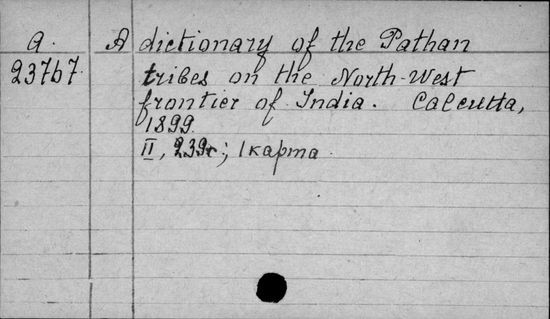 a. A dictionary of the Pathan
23767 tribes on the North-West
frontier of India. Calcutta,
1899.
II, 239с; 1 карта.